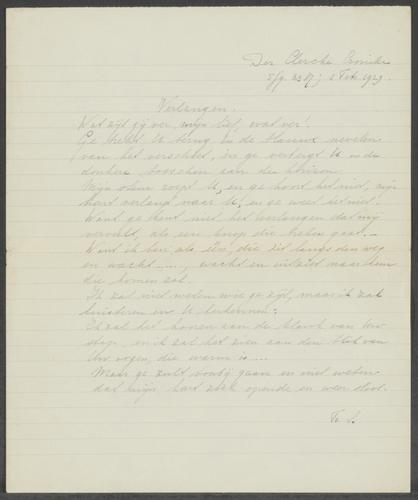 Verlangen.
Wat zijt gij ver, mijn lief, wat ver!
Ge trekt U terug in de blauwe nevelen
van het verschiet, en ge verbergt U in de
donkere bosschen aan den horizon.
Mijn stem roept U, en ge hoort het niet, mijn
hart verlangt naar U, en ge weet het niet.
Want ge kent niet het verlangen dat mij
vervult, als een knop die breken gaat.
Want ik ben als één, die zit langs den weg
en wacht ...., wacht en uitziet naar hem
die komen zal.
Ik zal niet weten wie ge zijt, maar ik zal
luisteren en U herkennen:
Ik zal het hooren aan de klank van Uw
stap, en ik zal het zien aan den blik van
Uw oogen, die warm is ...
Maar ge zult voorbij gaan en niet weten
dat mijn hart zich opende en weer sloot.